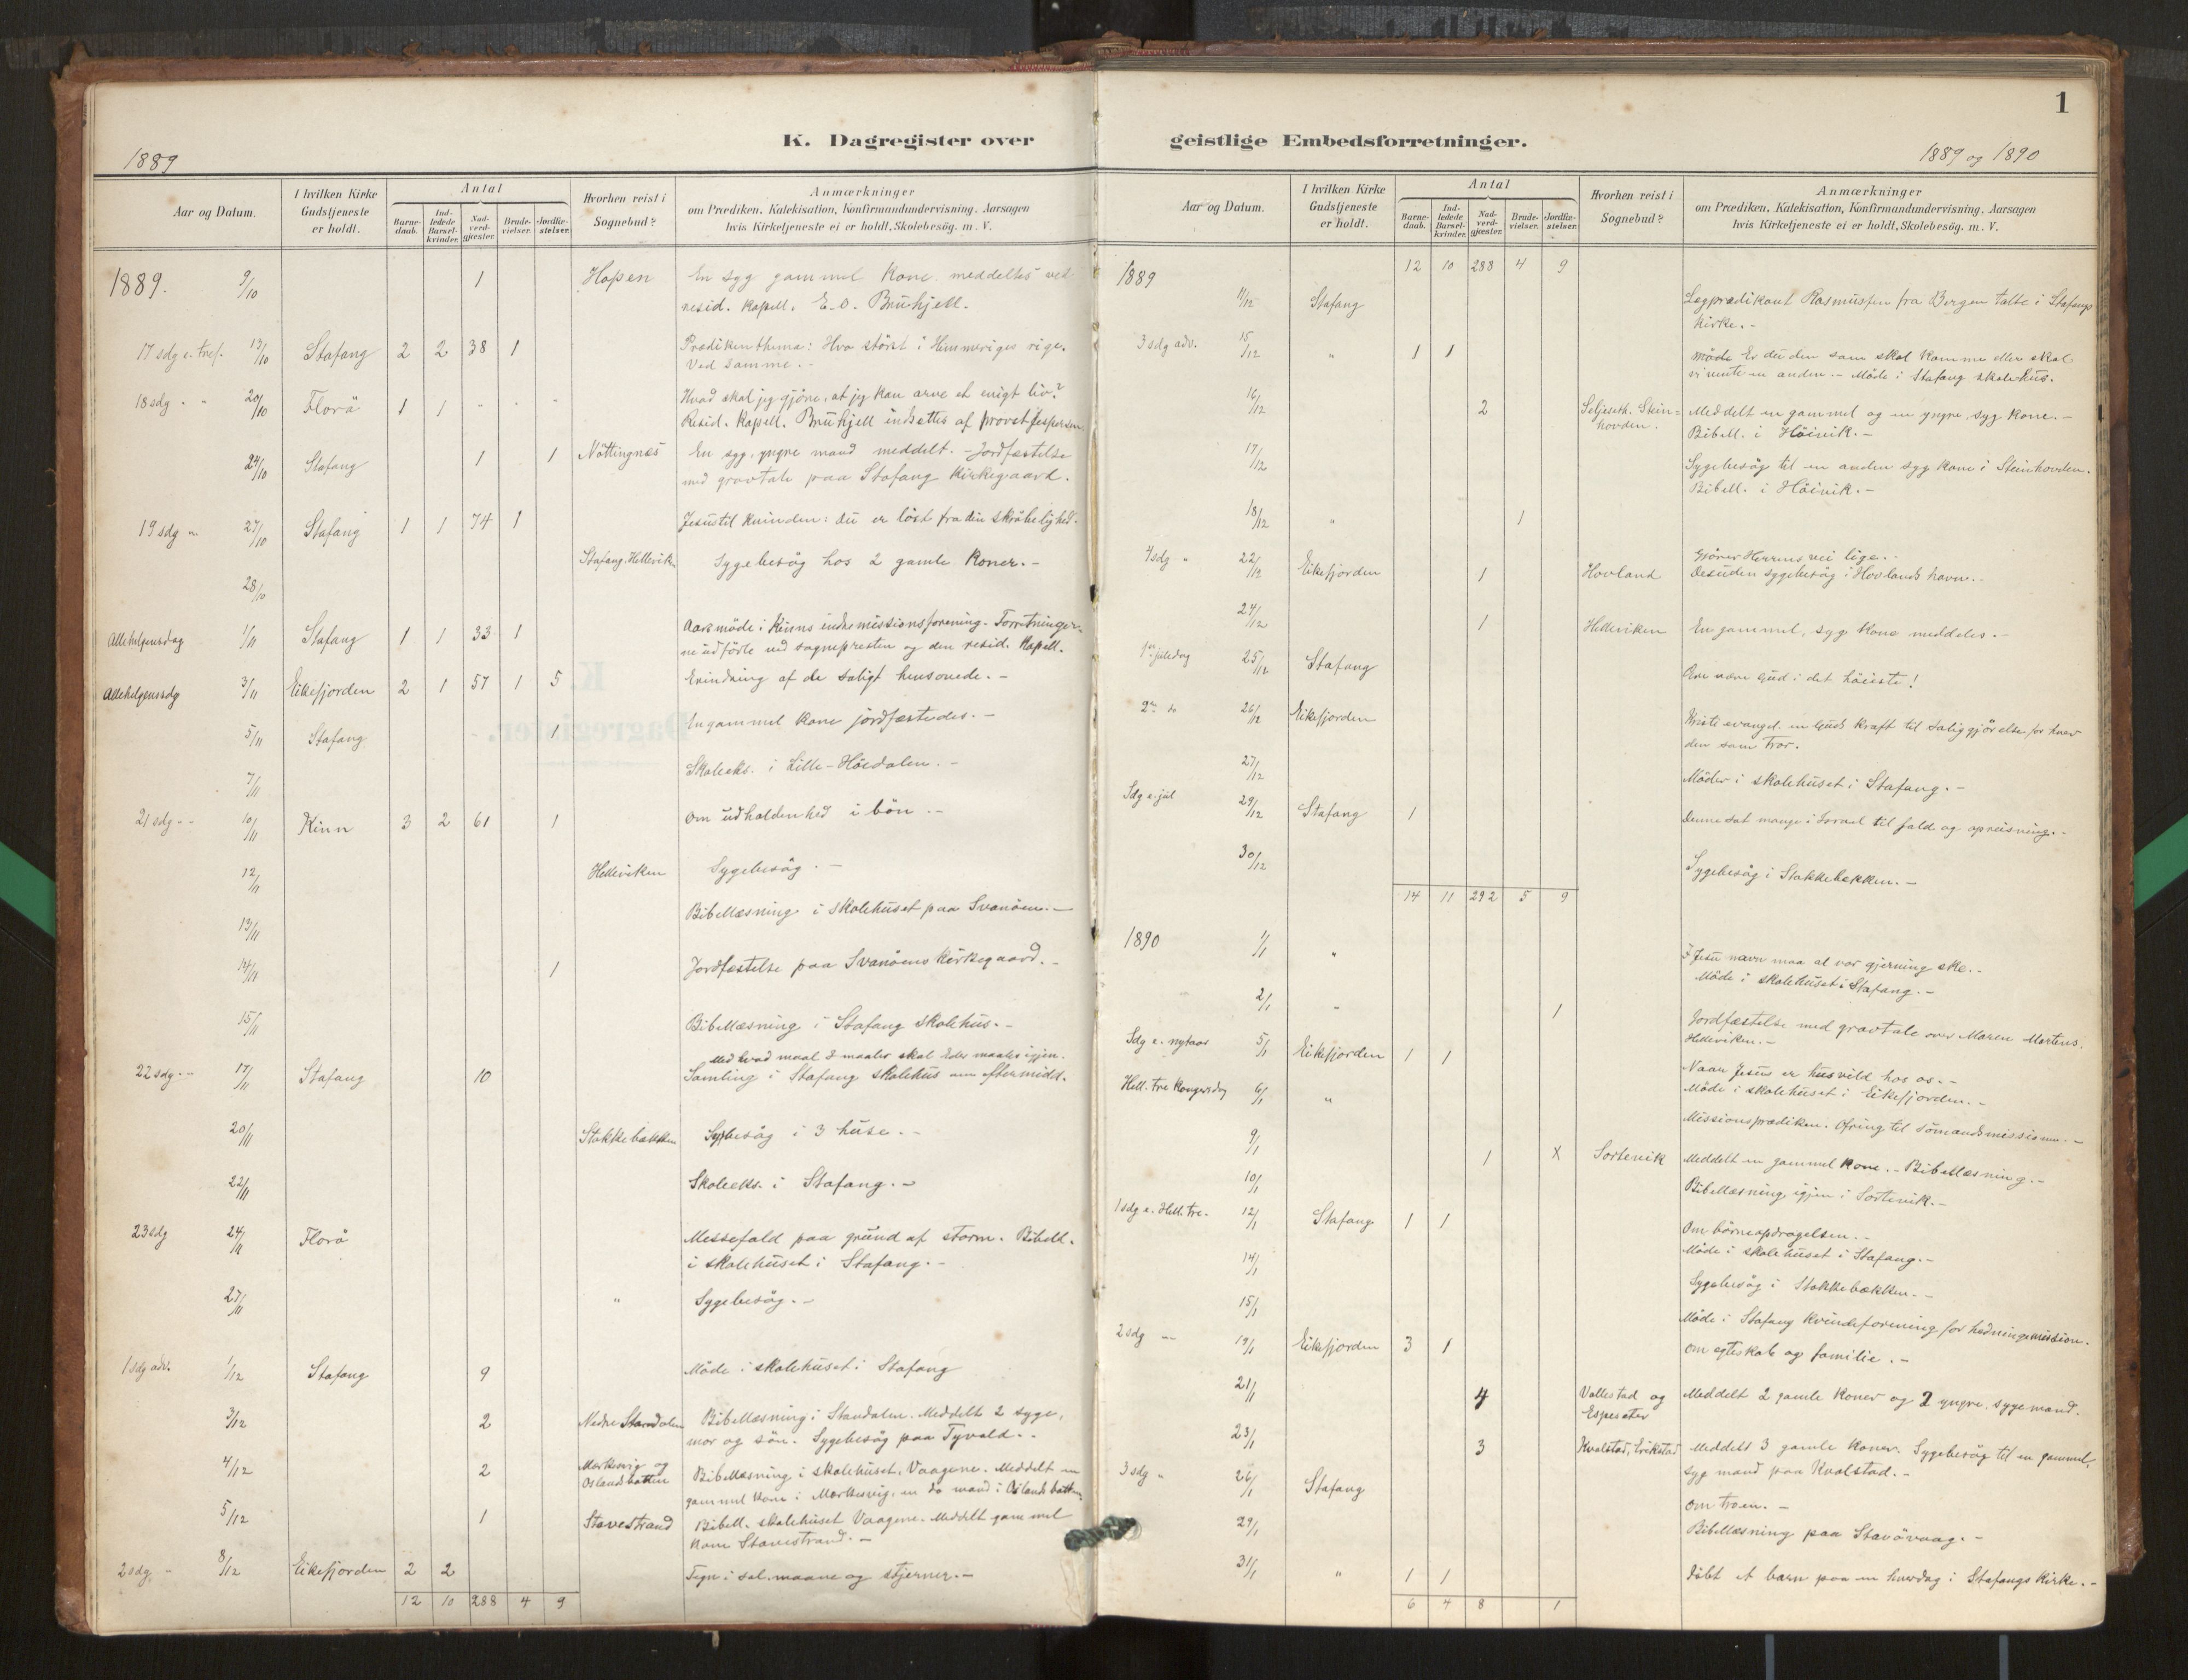 1889
K. Dagregister over
Aar og Datum.
I hvilken Kirke Gudstjeneste er holdt.
Antal
Barnedaab.
Indledede Barselkvinder.
Nadverdgjæster.
Brudevielser.
Jordfæstelser.
Hvorhen reist i Sognebud?
Anmærkninger
om Prædiken, Katekisation, Konfirmandundervisning, Aarsagen
hvis Kirketjeneste ei er holdt, Skolebesög. m. V.
1889. 9/10 1 Hopen En syg gammel Kone meddeltes ved
resid. Kapell. E.O. Bruhjell.
17 sdg e. tref. 13/10 Stafang 2 2 38 1 Prædikenthema: Hvo störst i Himmeriges rige.
Ved samme. -
18 sdg " " 20/10 Florö 1 1 - - - Hvad skal jeg gjöre, at jeg kan arve et evigt liv?
Resid. Kapell. Bruhjell indsattes af provst Jespersen.
24/10 Stafang 1 1 Nöttingnæs En syg, yngre mand meddelt. - Jordfæstelse
med gravtale paa Stafang Kirkegaard.
19 sdg " 27/10 Stafang 1 1 74 1 Jesus til Kvinden: du er löst fra din skröbelighed.
28/10 Stafang. Helleviken Sygebesög hos 2 gamle Koner. -
Allehelgensdag 1/11 Stafang 1 1 33 1 Aarsmöde i Kinns indremissionsforening. Forretninger-
ne udförte ved sognepresten og den resid. Kapell.
Allehelgenssdg 3/11 Eikefjorden 2 1 57 1 5 Erindring af de saligt hensovede. -
5/11 Stafang 1 En gammel Kone jordfæstedes. -
7/11 Skoleeks. i Lille-Höidalen. -
21 sdg - - 10/11 Kinn 3 2 61 1 Om udholdenhed i bön. -
12/11 Helleviken Sygebesög. -
13/11 Bibellæsning i skolehuset paa Svanöen. -
14/11 1 Jordfæstelse paa Svanöens Kirkegaard. -
15/11 Bibellæsning i Stafang skolehus. -
Med hvad maal I maaler skal Eder maales igjen.
22 sdg. - 17/11 Stafang 10 Samling i Stafang skolehus om eftermidd.
20/11 Stokkebækken Sygebesög i 3 huse. -
22/11 Skoleeks. i Stafang. -
23 sdg 24/11 Florö Messefald paa grund af storm. Bibell.
i skolehuset i Stafang. -
27/11 " Sygebesög. -
1 sdg adv. 1/12 Stafang 9 Möde i skolehuset i Stafang
3/12 2 Nedre Standalen Bibellæsning i Standalen. Meddelt 2 syge,
mor og sön. Sygebesög paa Tyvold. -
4/12 2 Markevig og Oslandsbotten Bibellæsning i skolehuset, Vaagene. Meddelt en
gammel Kone i Markesvig, en do mand i Oslandsbotten
5/12 1 Stavestrand Bibell. skolehuset Vaagene. Meddelt gammel
Kone Stavestrand. -
2 sdg " 8/12 Eikefjorden 2 2 Tegn i sol, maane og stjerner. -
12 10 288 4 9
1
geistlige Embedsforretninger.
1889 og 1890
Aar og Datum.
I hvilken Kirke Gudstjeneste er holdt.
Antal
Barnedaab.
Indledede Barselkvinder.
Nadverdgjæster.
Brudevielser.
Jordfæstelser.
Hvorhen reist i Sognebud?
Anmærkninger
om Prædiken, Katekisation, Konfirmandundervisning, Aarsagen
hvis Kirketjeneste ei er holdt, Skolebesög. m. V.
1889 12 10 288 4 9
11/12 Stafang Lægprædikant Rasmussen fra Bergen talte i Stafangs
Kirke. -
3 sdg adv. 15/12 " 1 1 Er du den som skal Komme eller skal
vi vente en anden. - Möde i Stafang skolehus.
16/12 2 Seljeseth. Steinhovden. Meddelt en gammel og en yngre, syg Kone. -
Bibell. i Höivik. -
17/12 Sygebesög til en anden syg Kone i Steinhovden.
Bibell. i Höivik. -
18/12 " 1
4 sdg " 22/12 Eikefjorden 1 Hovland Gjörer Herrens vei lige. -
Desuden sygebesög i Hovlands havn. -
24/12 1 Helleviken En gammel, syg Kone meddeles. -
1ste juledag 25/12 Stafang Ære være Gud i det höieste!
2den do 26/12 Eikefjorden Kristi evangel. en Guds Kraft til saliggjörelse for hver
den som tror.
27/12 Möder i skolehuset i Stafang. -
Sdg e. jul 29/12 Stafang 1 Denne sat mange i Israel til fald og opreisning. -
30/12 Sygebesög i Stokkebækken. -
14 11 292 5 9
1890 1/1 " I Jesu navn maa al vor gjerning ske. -
Möde i skolehuset i Stafang. -
2/1 " 1 Jordfæstelse med gravtale over Maren Martens.
Helleviken. -
Sdg e. nytaar 5/1 Eikefjorden 1 1 Naar Jesus er husvild hos os. -
Möde i skolehuset i Eikefjorden. -
Hell. tre Kongersdag 6/1 " Missionsprædiken. Ofring til sömandsmissionen. -
9/1 1 X Sortevik Meddelt en gammel Kone. - Bibellæsning. -
10/1 Bibellæsning igjen i Sortevik. -
1 sdg e. Hell. tre. 12/1 Stafang 1 1 Om börneopdragelsen. -
Möde i skolehuset i Stafang. -
14/1 Sygebesög i Stokkebækken. -
15/1 Möde i Stafang Kvindeforening for hedningemission.
2 sdg - 19/1 Eikefjorden 3 1 Om egteskab og familie. -
21/1 4 Vallestad og Espeseter Meddelt 2 gamle Koner og 2 yngre, syge mænd.
23/1 3 Kvalstad, Erikstad Meddelt 3 gamle Koner. Sygebesög til en gammel,
syg mand paa Kvalstad. -
3 sdg " 26/1 Stafang Om troen. -
29/1 Bibellæsning paa Stavövaag. -
31/1 " 1 1 Döbt et barn paa en hverdag i Stafangs Kirke. -
6 4 8 1